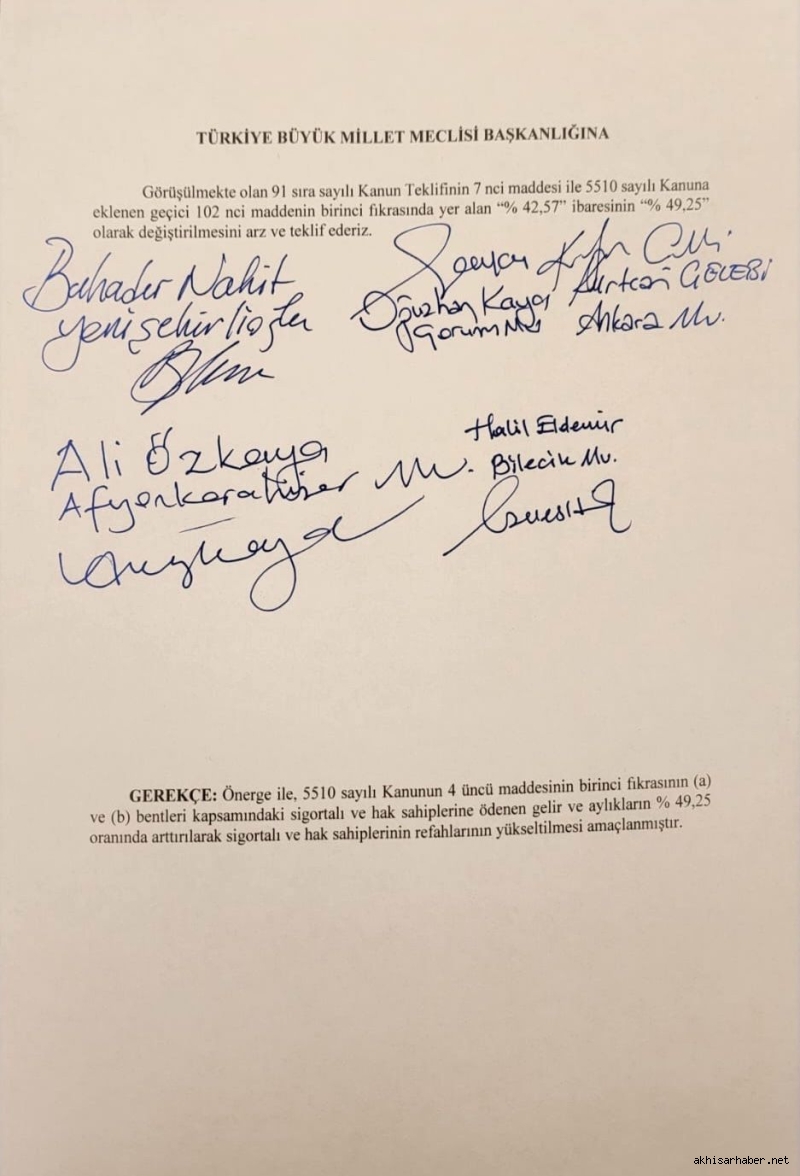 TÜRKİYE BÜYÜK MİLLET MECLİSİ BAŞKANLIĞINA
Görüşülmekte olan 91 sıra sayılı Kanun Teklifinin 7 nci maddesi ile 5510 sayılı Kanuna
eklenen geçici 102 nci maddenin birinci fıkrasında yer alan “% 42,57” ibaresinin “% 49,25”
olarak değiştirilmesini arz ve teklif ederiz.
Bahadır Nahit
Yenişehirlioğlu
Oğuzhan Kaya
Çorum Mv.
ÇELEBİ
Ankara Mv.
Ali Özkaya
Afyonkarahisar Mv.
Halil Eldemir
Bilecik Mv.
GEREKÇE: Önerge ile, 5510 sayılı Kanunun 4 üncü maddesinin birinci fıkrasının (a)
ve (b) bentleri kapsamındaki sigortalı ve hak sahiplerine ödenen gelir ve aylıkların % 49,25
oranında arttırılarak sigortalı ve hak sahiplerinin refahlarının yükseltilmesi amaçlanmıştır.
akhisarhaber.net